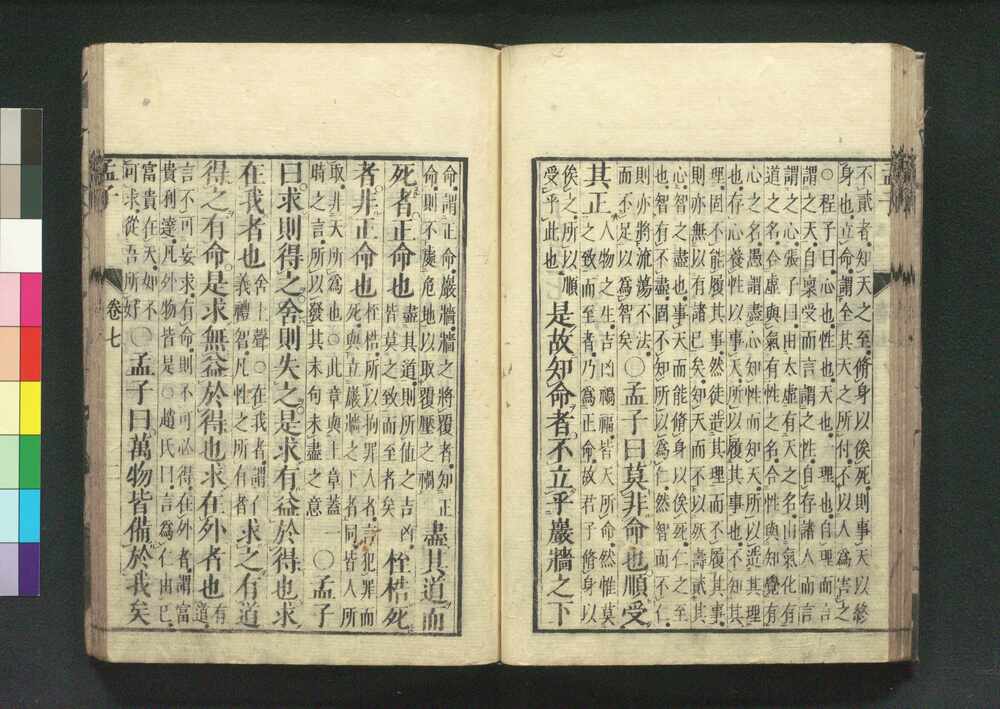 不貳者知天之至脩身以俟死則事天以終
身也立命謂全其天之所付不以人為害之
○程子曰心也性也天也一理也自理而言
謂之天自稟受而言謂之性自存諸人而言
謂之心張子曰由太虛有天之名由氣化有
道之名合虛與氣有性之名合性與知覺有
心之名愚謂盡心知性而知天所以造其理
也存心養性以事天所以履其事也不知其
理固不能履其事然徒造其理而不履其事
則亦無以有諸己矣知天而不以殀壽貳其
心智之盡也事天而能脩身以俟死仁之至
也智有不盡固不知所以為仁然智而不仁
則亦將流蕩不法
而不足以為智矣
○孟子曰莫非命也順受
其正
人物之生吉凶禍福皆天所命然惟莫
之致而至者乃為正命故君子脩身以
俟之所以順
受乎此也
是故知命者不立乎巖牆之下
命謂正命巖牆牆之將覆者知正
命則不處危地以取覆壓之禍
盡其道而
死者正命也
盡其道則所值之吉凶
皆莫之致而至者矣
桎梏死
者非正命也
桎梏所以拘罪人者言犯罪而
死與立巖牆之下者同皆人所
取非天所為也○此章與上章蓋一
時之言所以發其末句未盡之意
○孟子
曰求則得之舍則失之是求有益於得也求
在我者也
舍上聲○在我者謂仁
義禮智凡性之所有者
求之有道
得之有命是求無益於得也求在外者也
有
道
言不可妄求有命則不可必得在外者謂富
貴利達凡外物皆是○趙氏曰言為仁由己
富貴在天如不
可求從吾所好
○孟子曰萬物皆備於我矣
孟子
卷七
二